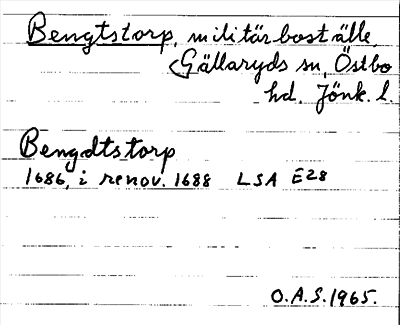 Bengtstorp, militärboställe,
Gällaryds sn, Östbo
hd. Jönk. l.
Bengdtstorp
1686, i renov. 1688 LSA E28
O.A.S. 1965.